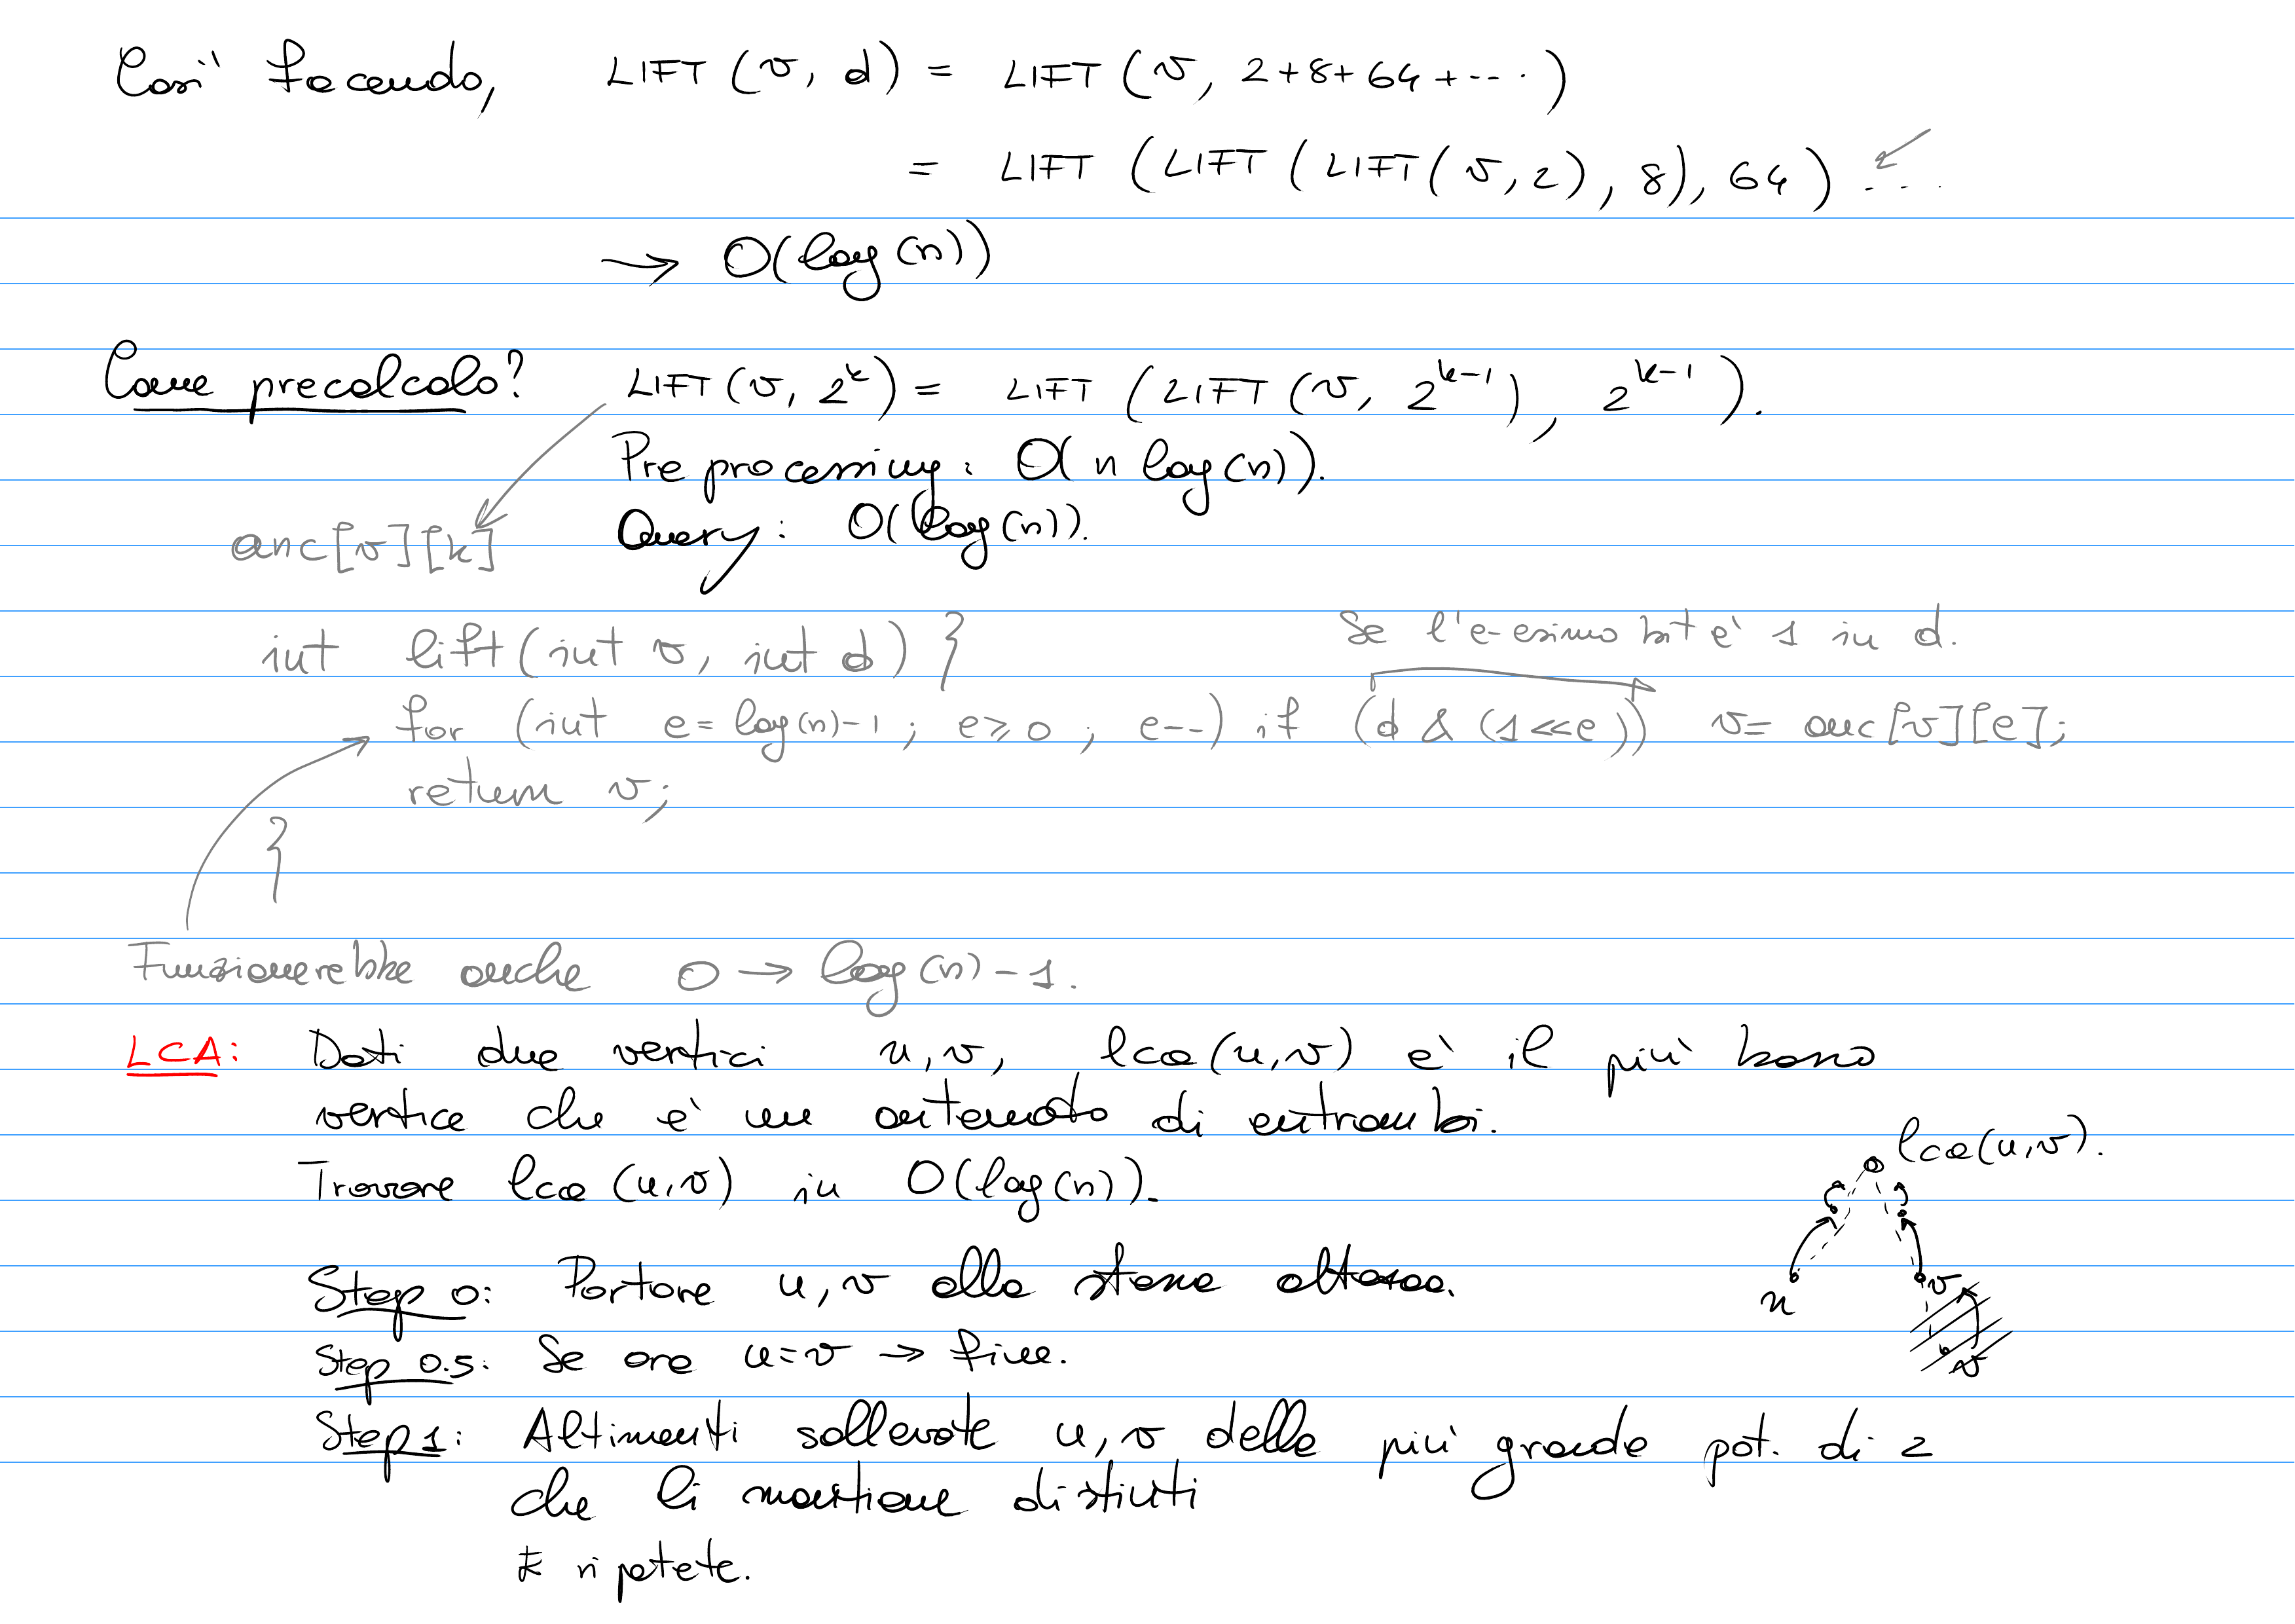 Così facendo, LIFT (v, d) = LIFT (v, 2+8+64+....)
= LIFT (LIFT (LIFT(v,2), 8), 64) ....
→ O(log(n))
Come precalcolo? LIFT(v, 2^k) = LIFT (LIFT (v, 2^{k-1}), 2^{k-1}).
Preprocessing: O(n log(n)).
Query: O(log(n)).
anc[v][k]
int lift(int v, int d) }
Se l'e-esimo bit è 1 in d.
for (int e = log(n)-1 ; e≥0 ; e--) if (d & (1<<e)) v = anc[v][e];
return v;
}
Funzionerebbe anche 0 → log(n)-1.
LCA: Dati due vertici u,v, lca(u,v) è il più basso
vertice che è un antenato di entrambi.
lca(u,v).
Trovare lca(u,v) in O(log(n)).
Step 0: Portare u,v alla stessa altezza.
u v
Step 0.5: Se ora u=v → fine.
v
Step 1: Altrimenti sollevate u,v della più grande pot. di 2
che li mantiene distinti
E ripetete.